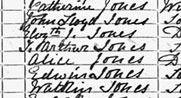 Catherine Jones
John Lloyd Jones
Elizth J. Jones
T. Arthur Jones
Alice Jones
Edwin Jones
Watkin Jones